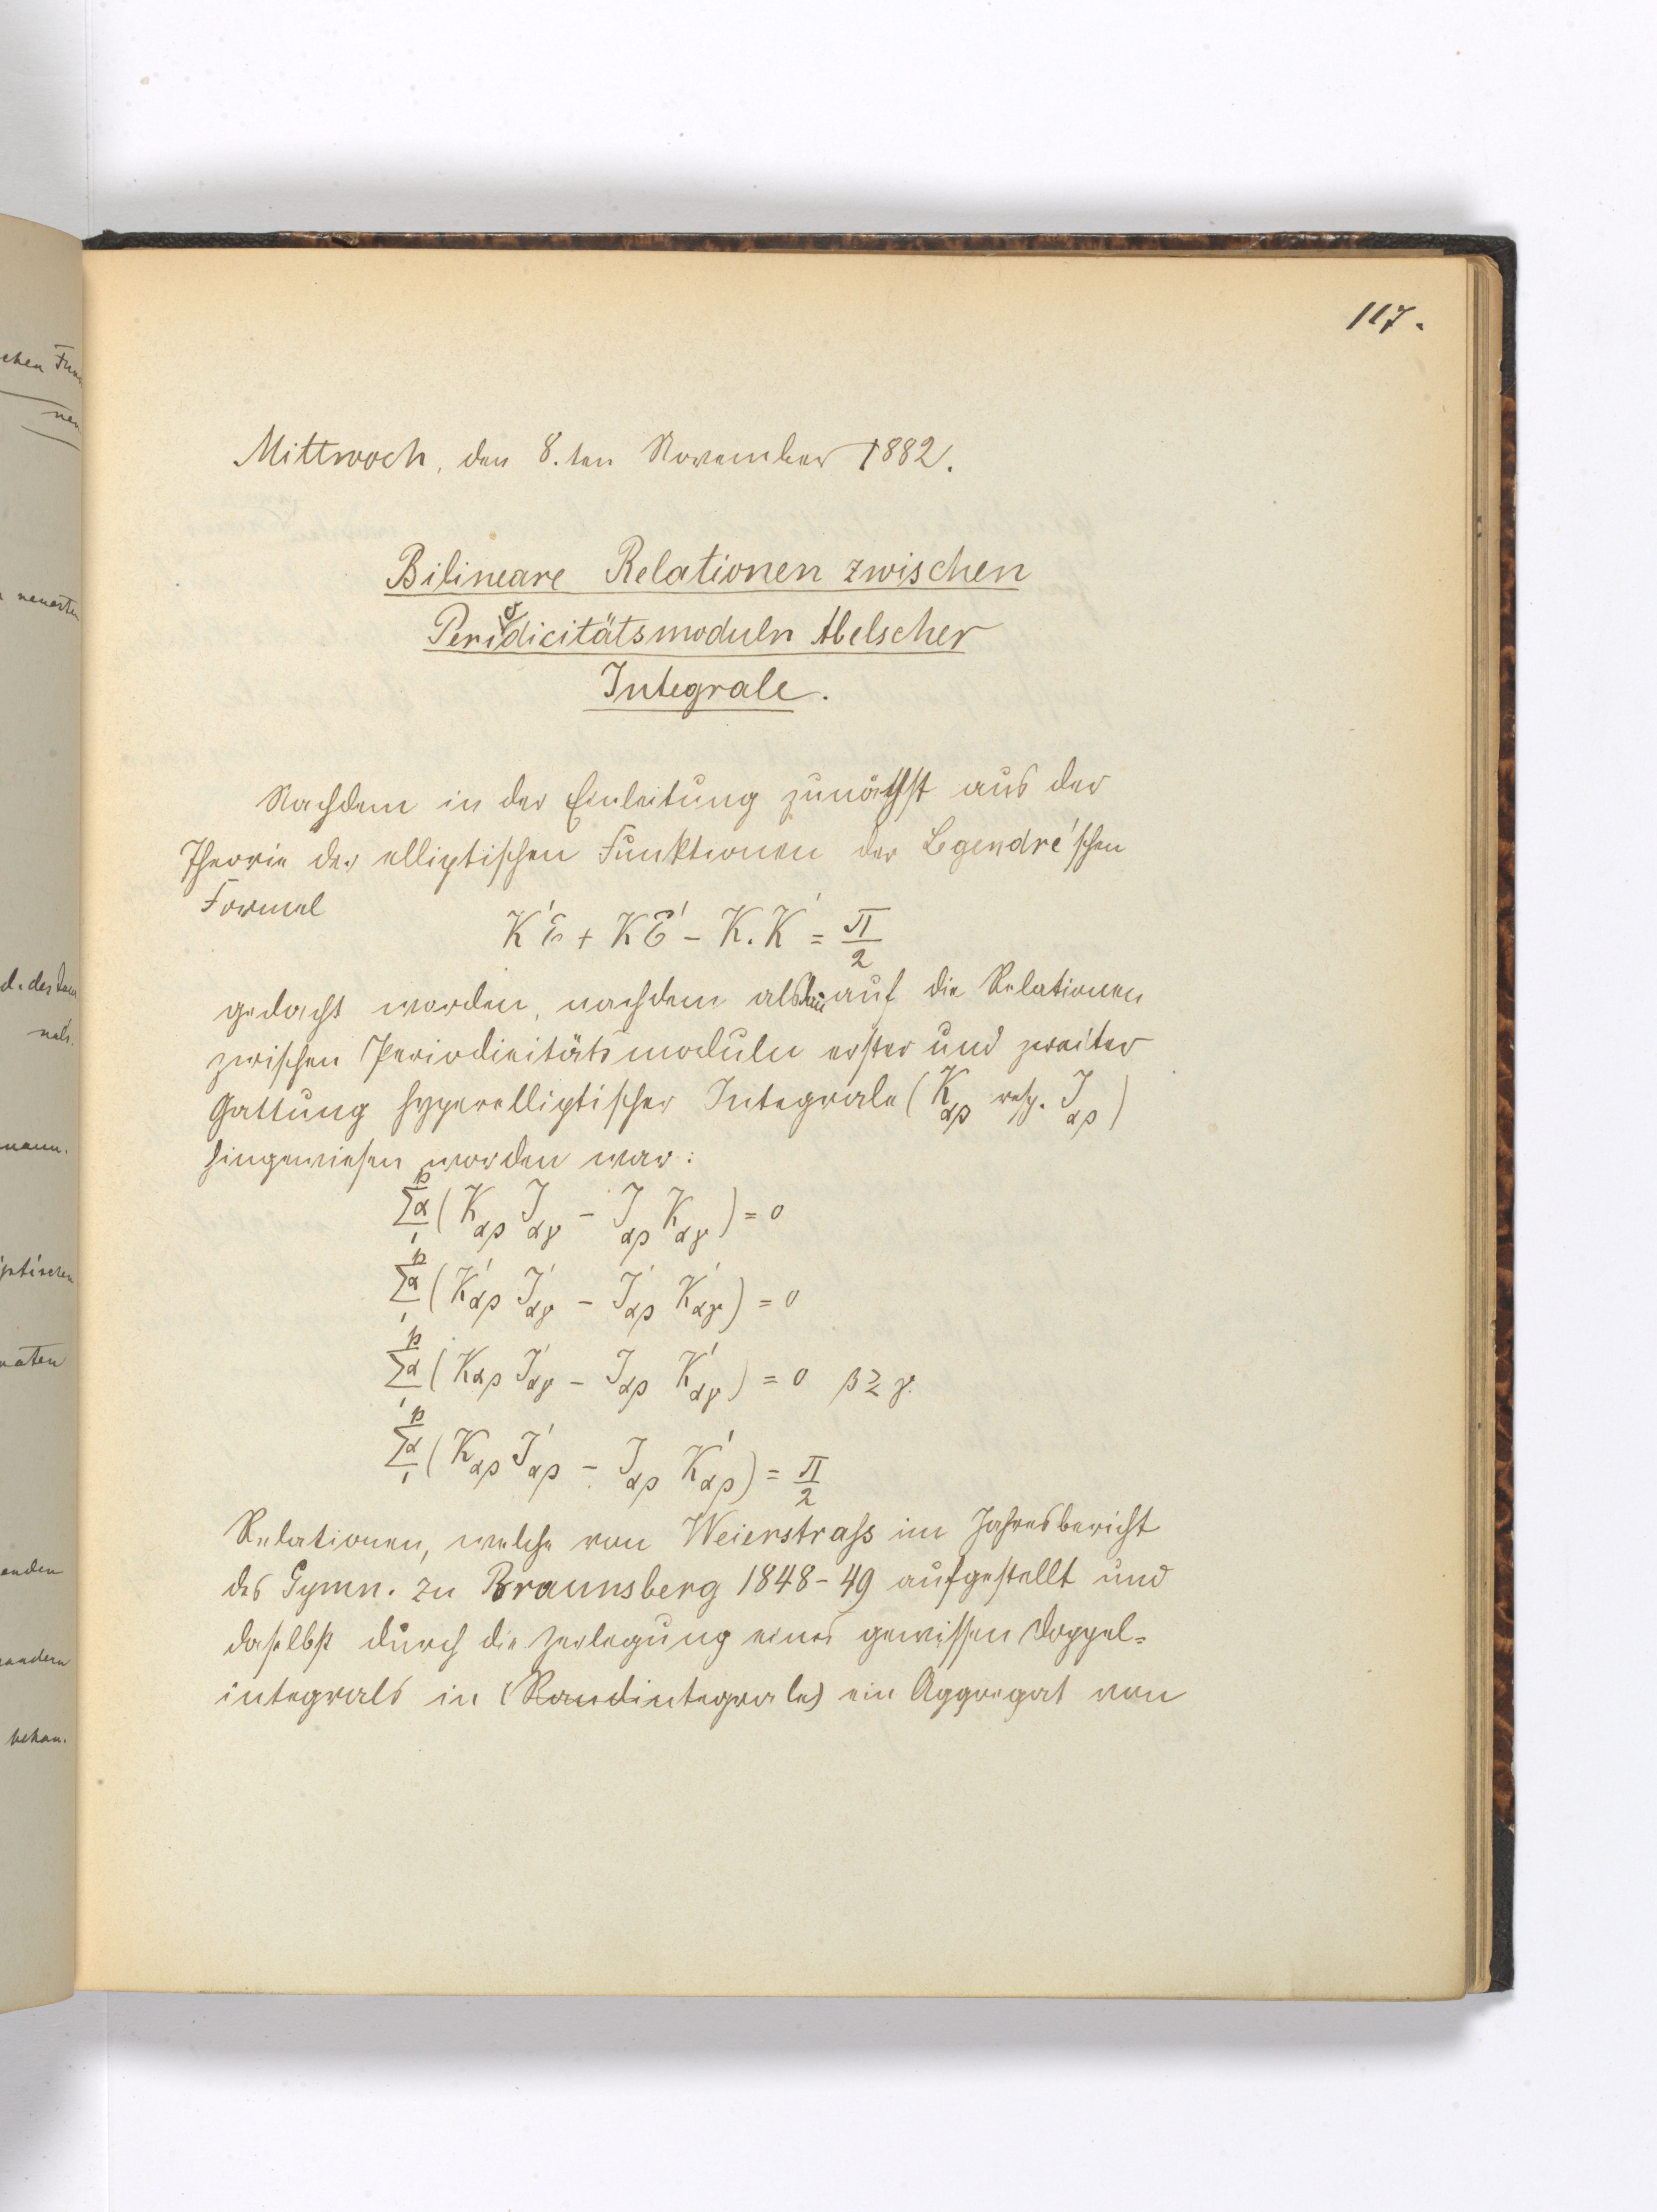 117.
Mittwoch, den 8.ten November 1882.
Bilineare Relationen zwischen
Periodicitätsmoduln Abelscher
Integrale.
Nachdem in der Einleitung zunächst aus der
Theorie der elliptischen Funktionen der Legendre'schen
Formel
K'E + KE' - K.K' = π/2
gedacht worden, nachdem alsdann auf die Relationen
zwischen Periodicitätsmoduln erster und zweiter
Gattung hyperelliptischer Integrale (K_αβ resp. J_αβ)
hingewiesen worden war:
Σ_1^p α (K_αβ J_αγ - J_αβ K_αγ) = 0
Σ_1^p α (K'_αβ J'_αγ - J'_αβ K'_αγ) = 0
Σ_1^p α (K_αβ J'_αγ - J_αβ K'_αγ) = 0 β ≷ γ.
Σ_1^p α (K_αβ J'_αβ - J_αβ K'_αβ) = π/2
Relationen, welche von Weierstraß im Jahresbericht
des Gymn. zu Braunsberg 1848-49 aufgestellt und
daselbst durch die Zerlegung eines gewissen Doppel=
integrals in (Randintegrale) ein Aggregat von